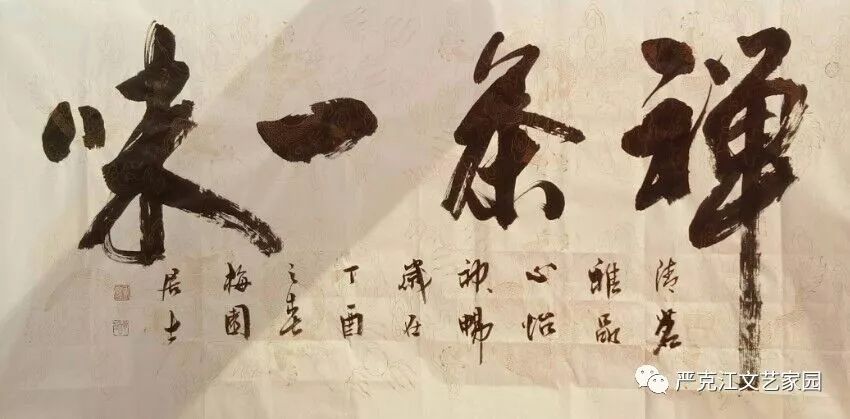 禅茶一味
清茗
雅品
心怡
神畅
岁在
丁酉
之春
梅园
居士
严克江文艺家园